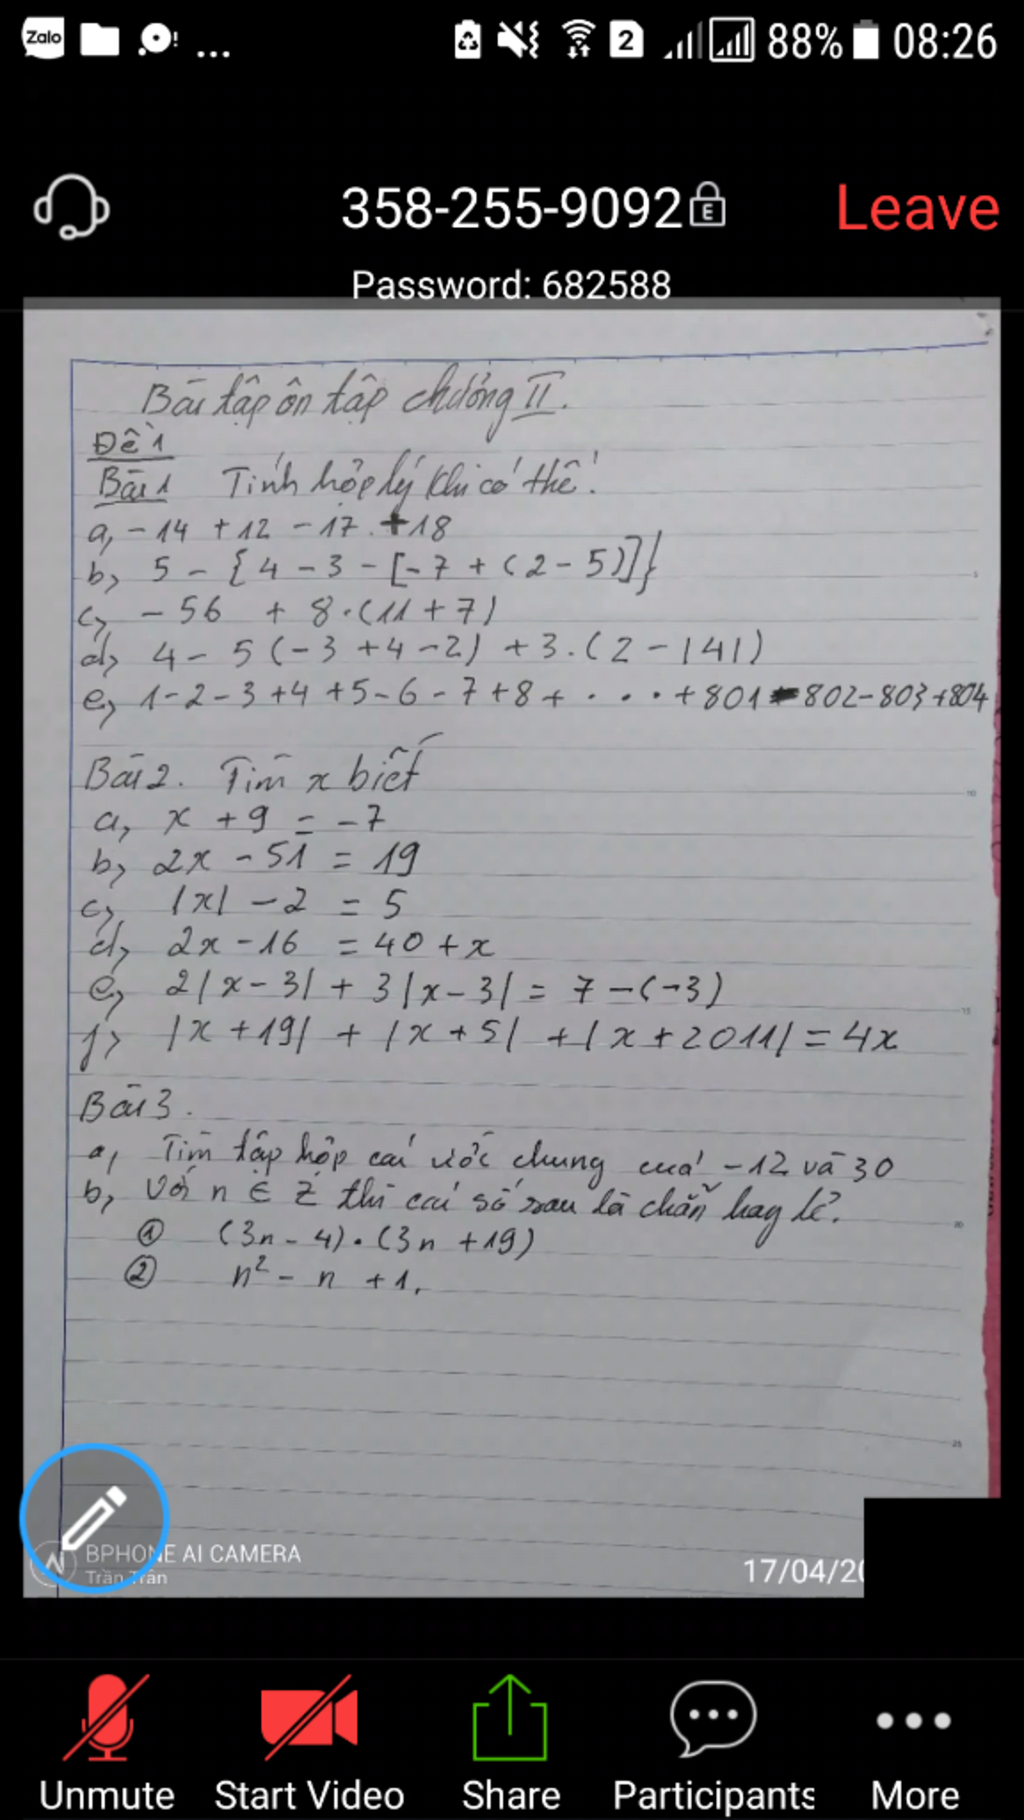 Zalo ... 2 88% 08:26
358-255-9092 E Leave
Password: 682588
Bài tập ôn tập chương II.
Đề 1
Bài 1 Tính hợp lý khi có thể!
a, -14 + 12 - 17 + 18
b, 5 - {4 - 3 - [-7 + (2 - 5)]}
c, - 56 + 8.(11 + 7)
d, 4 - 5 (-3 + 4 - 2) + 3.(2 - |4|)
e, 1 - 2 - 3 + 4 + 5 - 6 - 7 + 8 + . . . + 801 - 802 - 803 + 804
Bài 2. Tìm x biết
a, x + 9 = -7
b, 2x - 51 = 19
c, |x| - 2 = 5
d, 2x - 16 = 40 + x
e, 2|x - 3| + 3|x - 3| = 7 - (-3)
f, |x + 19| + |x + 5| + |x + 2011| = 4x
Bài 3.
a, Tìm tập hợp các ước chung của -12 và 30
b, Với n ∈ Z thì các số sau là chẵn hay lẻ.
① (3n - 4).(3n + 19)
② n² - n + 1.
BPHONE AI CAMERA
Trần Trần
17/04/20
Unmute Start Video Share Participants More